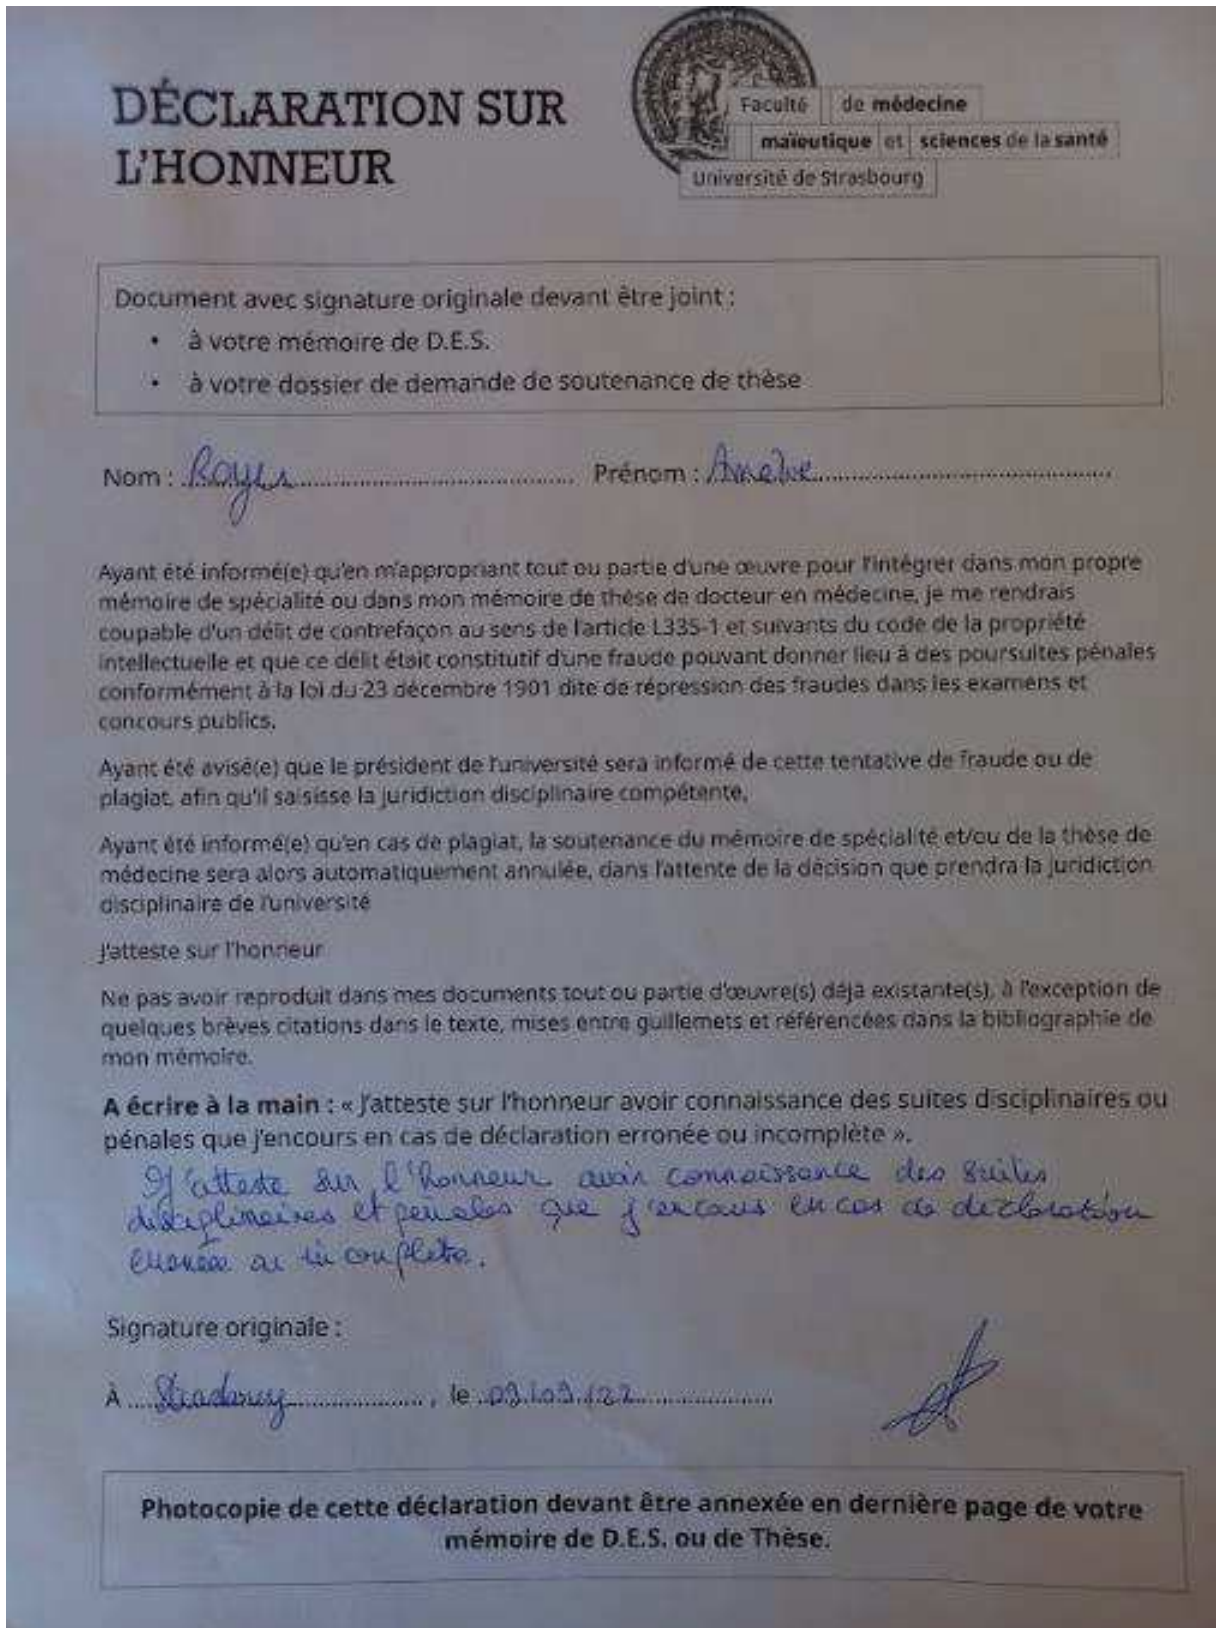 DÉCLARATION SUR
L'HONNEUR
Faculté de médecine
maïeutique et sciences de la santé
Université de Strasbourg
Document avec signature originale devant être joint :
• à votre mémoire de D.E.S.
• à votre dossier de demande de soutenance de thèse
Nom : Royer Prénom :
Ayant été informé(e) qu'en m'appropriant tout ou partie d'une œuvre pour l'intégrer dans mon propre
mémoire de spécialité ou dans mon mémoire de thèse de docteur en médecine, je me rendrais
coupable d'un délit de contrefaçon au sens de l'article L335-1 et suivants du code de la propriété
intellectuelle et que ce délit était constitutif d'une fraude pouvant donner lieu à des poursuites pénales
conformément à la loi du 23 décembre 1901 dite de répression des fraudes dans les examens et
concours publics.
Ayant été avisé(e) que le président de l'université sera informé de cette tentative de fraude ou de
plagiat, afin qu'il saisisse la juridiction disciplinaire compétente.
Ayant été informé(e) qu'en cas de plagiat, la soutenance du mémoire de spécialité et/ou de la thèse de
médecine sera alors automatiquement annulée, dans l'attente de la décision que prendra la juridiction
disciplinaire de l'université
J'atteste sur l'honneur
Ne pas avoir reproduit dans mes documents tout ou partie d'œuvre(s) déjà existante(s), à l'exception de
quelques brèves citations dans le texte, mises entre guillemets et référencées dans la bibliographie de
mon mémoire.
A écrire à la main : « J'atteste sur l'honneur avoir connaissance des suites disciplinaires ou
pénales que j'encours en cas de déclaration erronée ou incomplète ».
J'atteste sur l'honneur avoir connaissance des suites
disciplinaires et penales que j'encours en cas de declaration
erronée ou incomplète.
Signature originale :
À Strasbourg, le 09/09/22
Photocopie de cette déclaration devant être annexée en dernière page de votre
mémoire de D.E.S. ou de Thèse.